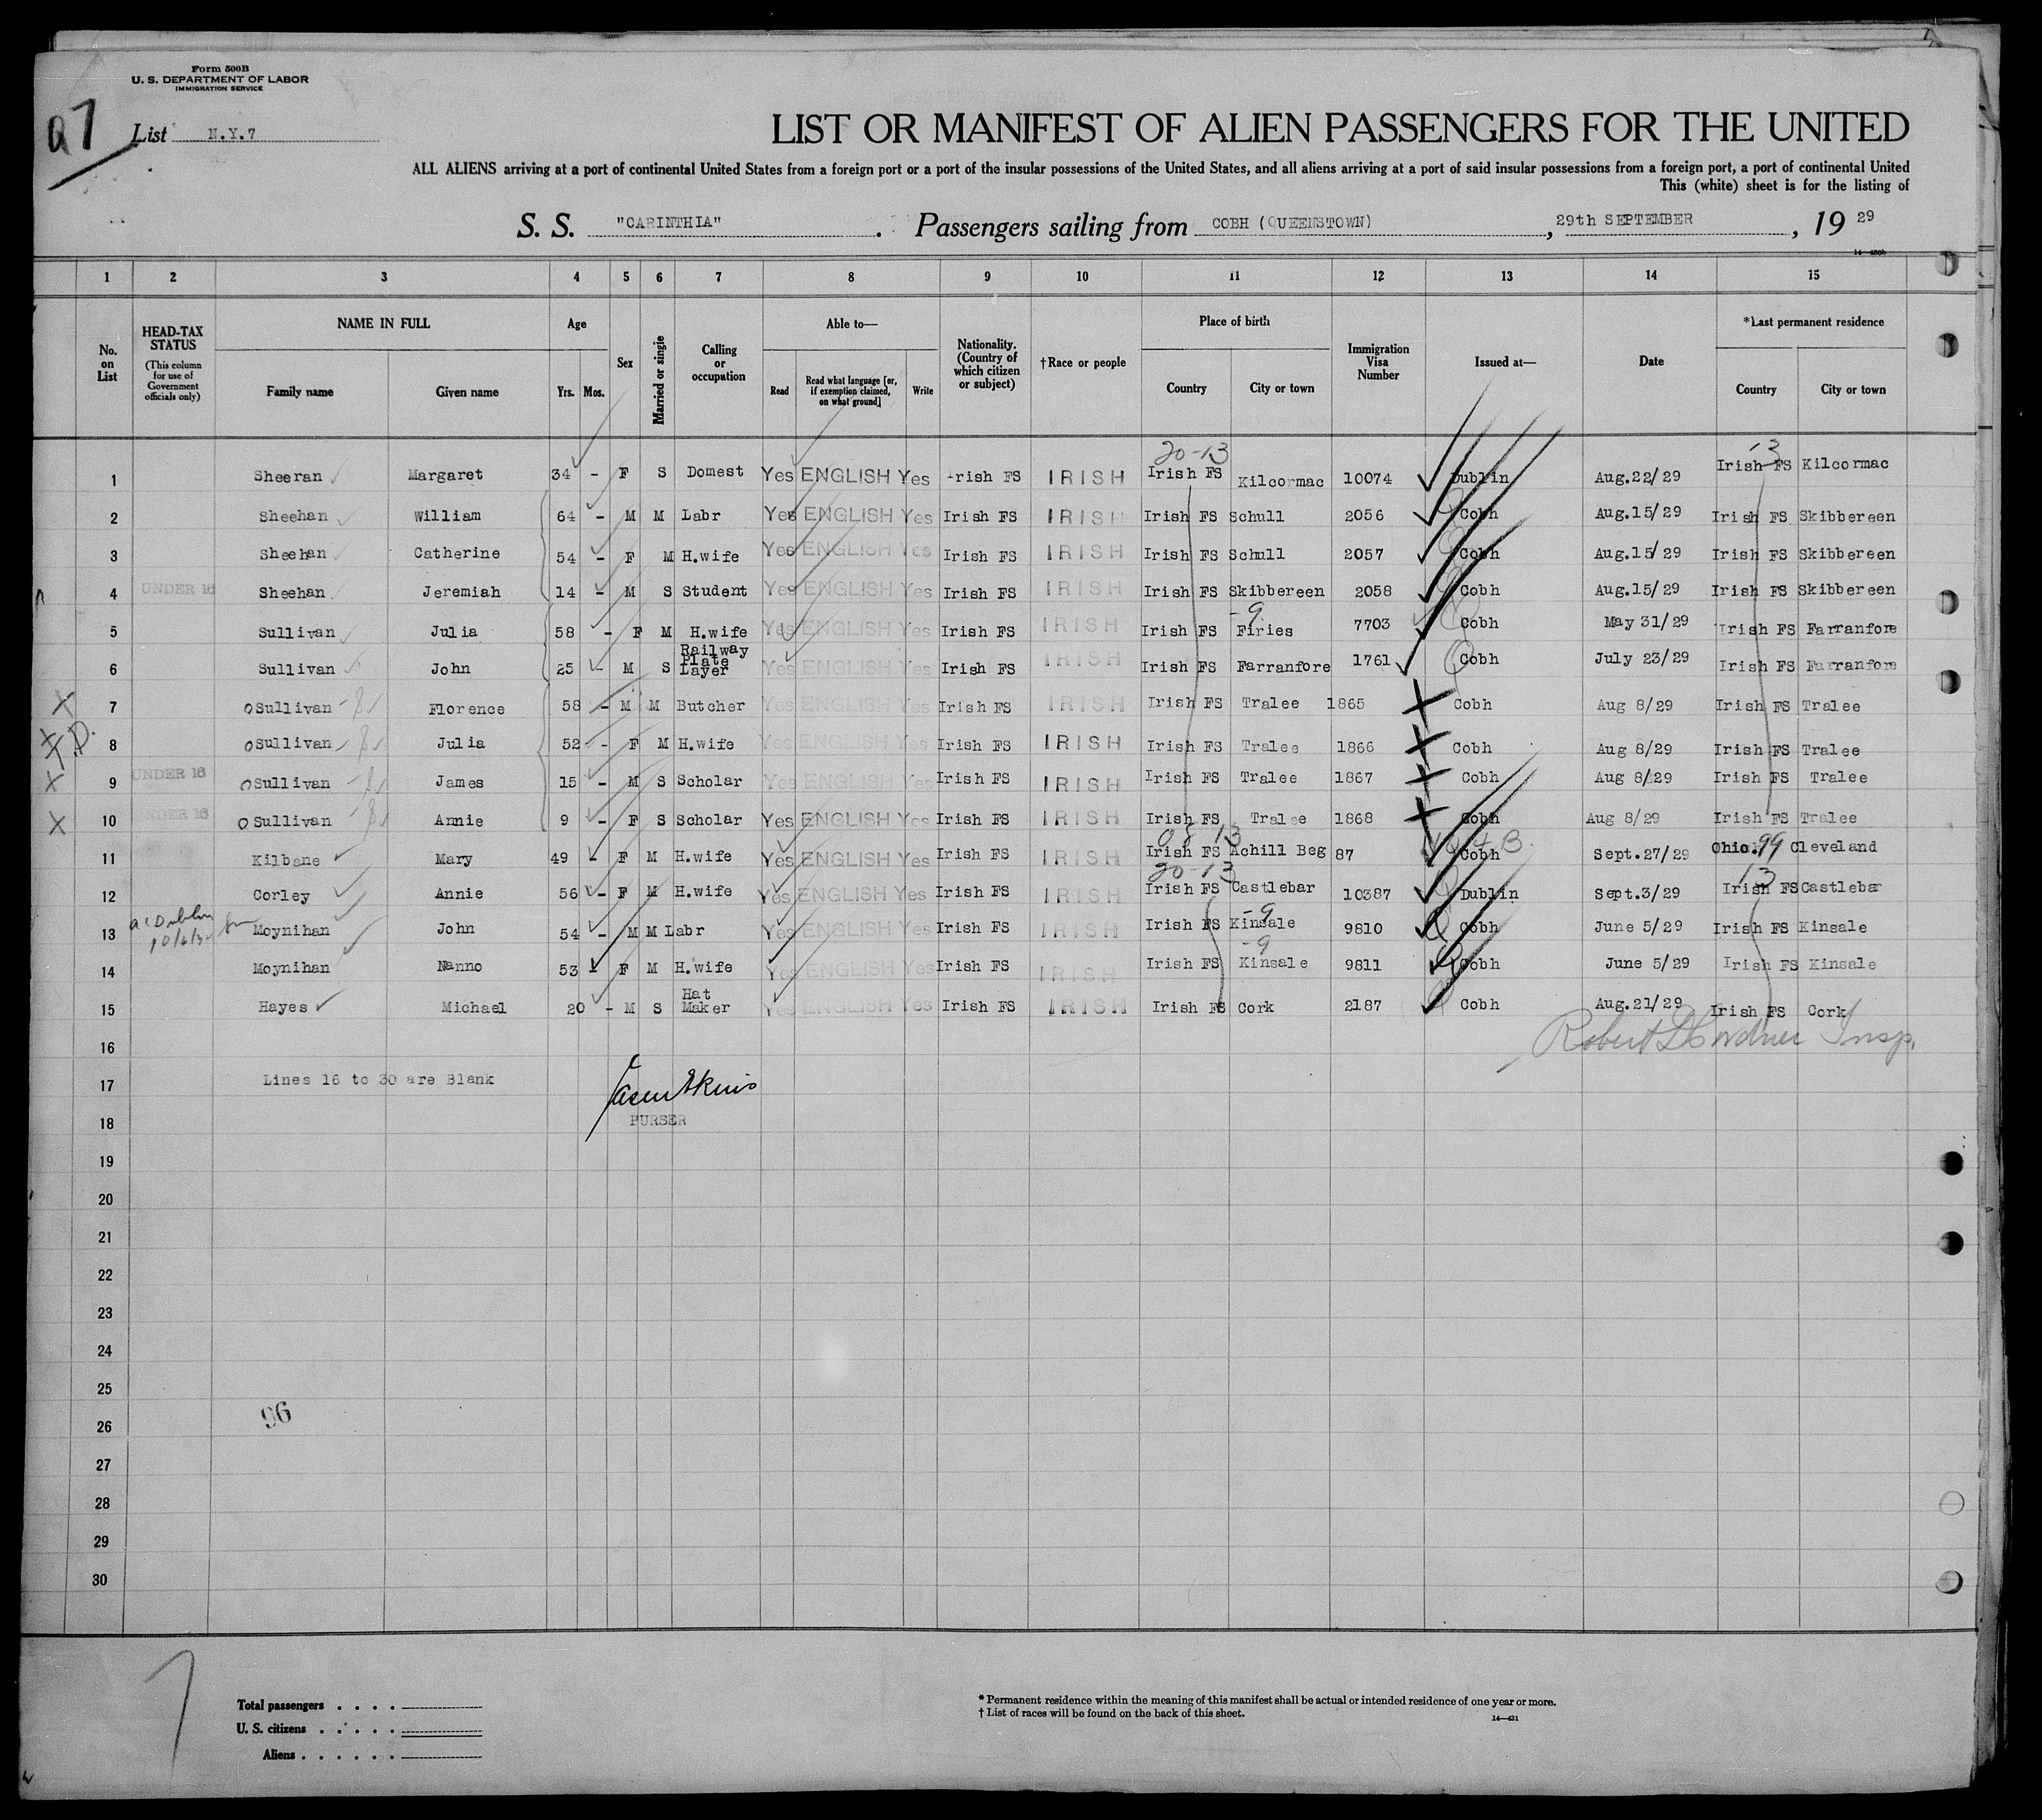 Form 500B
U. S. DEPARTMENT OF LABOR
IMMIGRATION SERVICE
List N.Y.7
LIST OR MANIFEST OF ALIEN PASSENGERS FOR THE UNITED
ALL ALIENS arriving at a port of continental United States from a foreign port or a port of the insular possessions of the United States, and all aliens arriving at a port of said insular possessions from a foreign port, a port of continental United
This (white) sheet is for the listing of
S. S. "CARINTHIA". Passengers sailing from COBH (QUEENSTOWN), 29th SEPTEMBER, 19 29
1 2 3 4 5 6 7 8 9 10 11 12 13 14 15
No. on List
HEAD-TAX STATUS
(This column for use of Government officials only)
NAME IN FULL
Family name Given name
Age
Yrs. Mos.
Sex
Married or single
Calling or occupation
Able to—
Read Read what language [or, if exemption claimed, on what ground] Write
Nationality. (Country of which citizen or subject)
†Race or people
Place of birth
Country City or town
Immigration Visa Number
Issued at—
Date
*Last permanent residence
Country City or town
20-13 13
1 Sheeran Margaret 34 - F S Domest Yes ENGLISH Yes Irish FS IRISH Irish FS Kilcormac 10074 Dublin Aug.22/29 Irish FS Kilcormac
2 Sheehan William 64 - M M Labr Yes ENGLISH Yes Irish FS IRISH Irish FS Schull 2056 Cobh Aug.15/29 Irish FS Skibbereen
3 Sheehan Catherine 54 - F M H.wife Yes ENGLISH Yes Irish FS IRISH Irish FS Schull 2057 Cobh Aug.15/29 Irish FS Skibbereen
4 UNDER 16 Sheehan Jeremiah 14 - M S Student Yes ENGLISH Yes Irish FS IRISH Irish FS Skibbereen 2058 Cobh Aug.15/29 Irish FS Skibbereen
-9
5 Sullivan Julia 58 - F M H.wife Yes ENGLISH Yes Irish FS IRISH Irish FS Firies 7703 Cobh May 31/29 Irish FS Farranfore
6 Sullivan John 25 - M S Railway Plate Layer Yes ENGLISH Yes Irish FS IRISH Irish FS Farranfore 1761 Cobh July 23/29 Irish FS Farranfore
X 7 OSullivan Florence 58 - M M Butcher Yes ENGLISH Yes Irish FS IRISH Irish FS Tralee 1865 Cobh Aug 8/29 Irish FS Tralee
X T.D. 8 OSullivan Julia 52 - F M H.wife Yes ENGLISH Yes Irish FS IRISH Irish FS Tralee 1866 Cobh Aug 8/29 Irish FS Tralee
X 9 UNDER 16 OSullivan James 15 - M S Scholar Yes ENGLISH Yes Irish FS IRISH Irish FS Tralee 1867 Cobh Aug 8/29 Irish FS Tralee
X 10 UNDER 16 O Sullivan Annie 9 - F S Scholar Yes ENGLISH Yes Irish FS IRISH Irish FS Tralee 1868 Cobh Aug 8/29 Irish FS Tralee
11 Kilbane Mary 49 - F M H.wife Yes ENGLISH Yes Irish FS IRISH Irish FS Achill Beg 87 Cobh Sept.27/29 Ohio. 99 Cleveland
20-13 13
12 Corley Annie 56 - F M H.wife Yes ENGLISH Yes Irish FS IRISH Irish FS Castlebar 10387 Dublin Sept.3/29 Irish FS Castlebar
-9
13 Moynihan John 54 - M M Labr Yes ENGLISH Yes Irish FS IRISH Irish FS Kinsale 9810 Cobh June 5/29 Irish FS Kinsale
-9
14 Moynihan Nanno 53 - F M H.wife Yes ENGLISH Yes Irish FS IRISH Irish FS Kinsale 9811 Cobh June 5/29 Irish FS Kinsale
15 Hayes Michael 20 - M S Hat Maker Yes ENGLISH Yes Irish FS IRISH Irish FS Cork 2187 Cobh Aug.21/29 Irish FS Cork
16
17 Lines 16 to 30 are Blank
18 PURSER
19
20
21
22
23
24
25
26
96
27
28
29
30
7
Total passengers
U. S. citizens
Aliens
* Permanent residence within the meaning of this manifest shall be actual or intended residence of one year or more.
† List of races will be found on the back of this sheet.
14—431